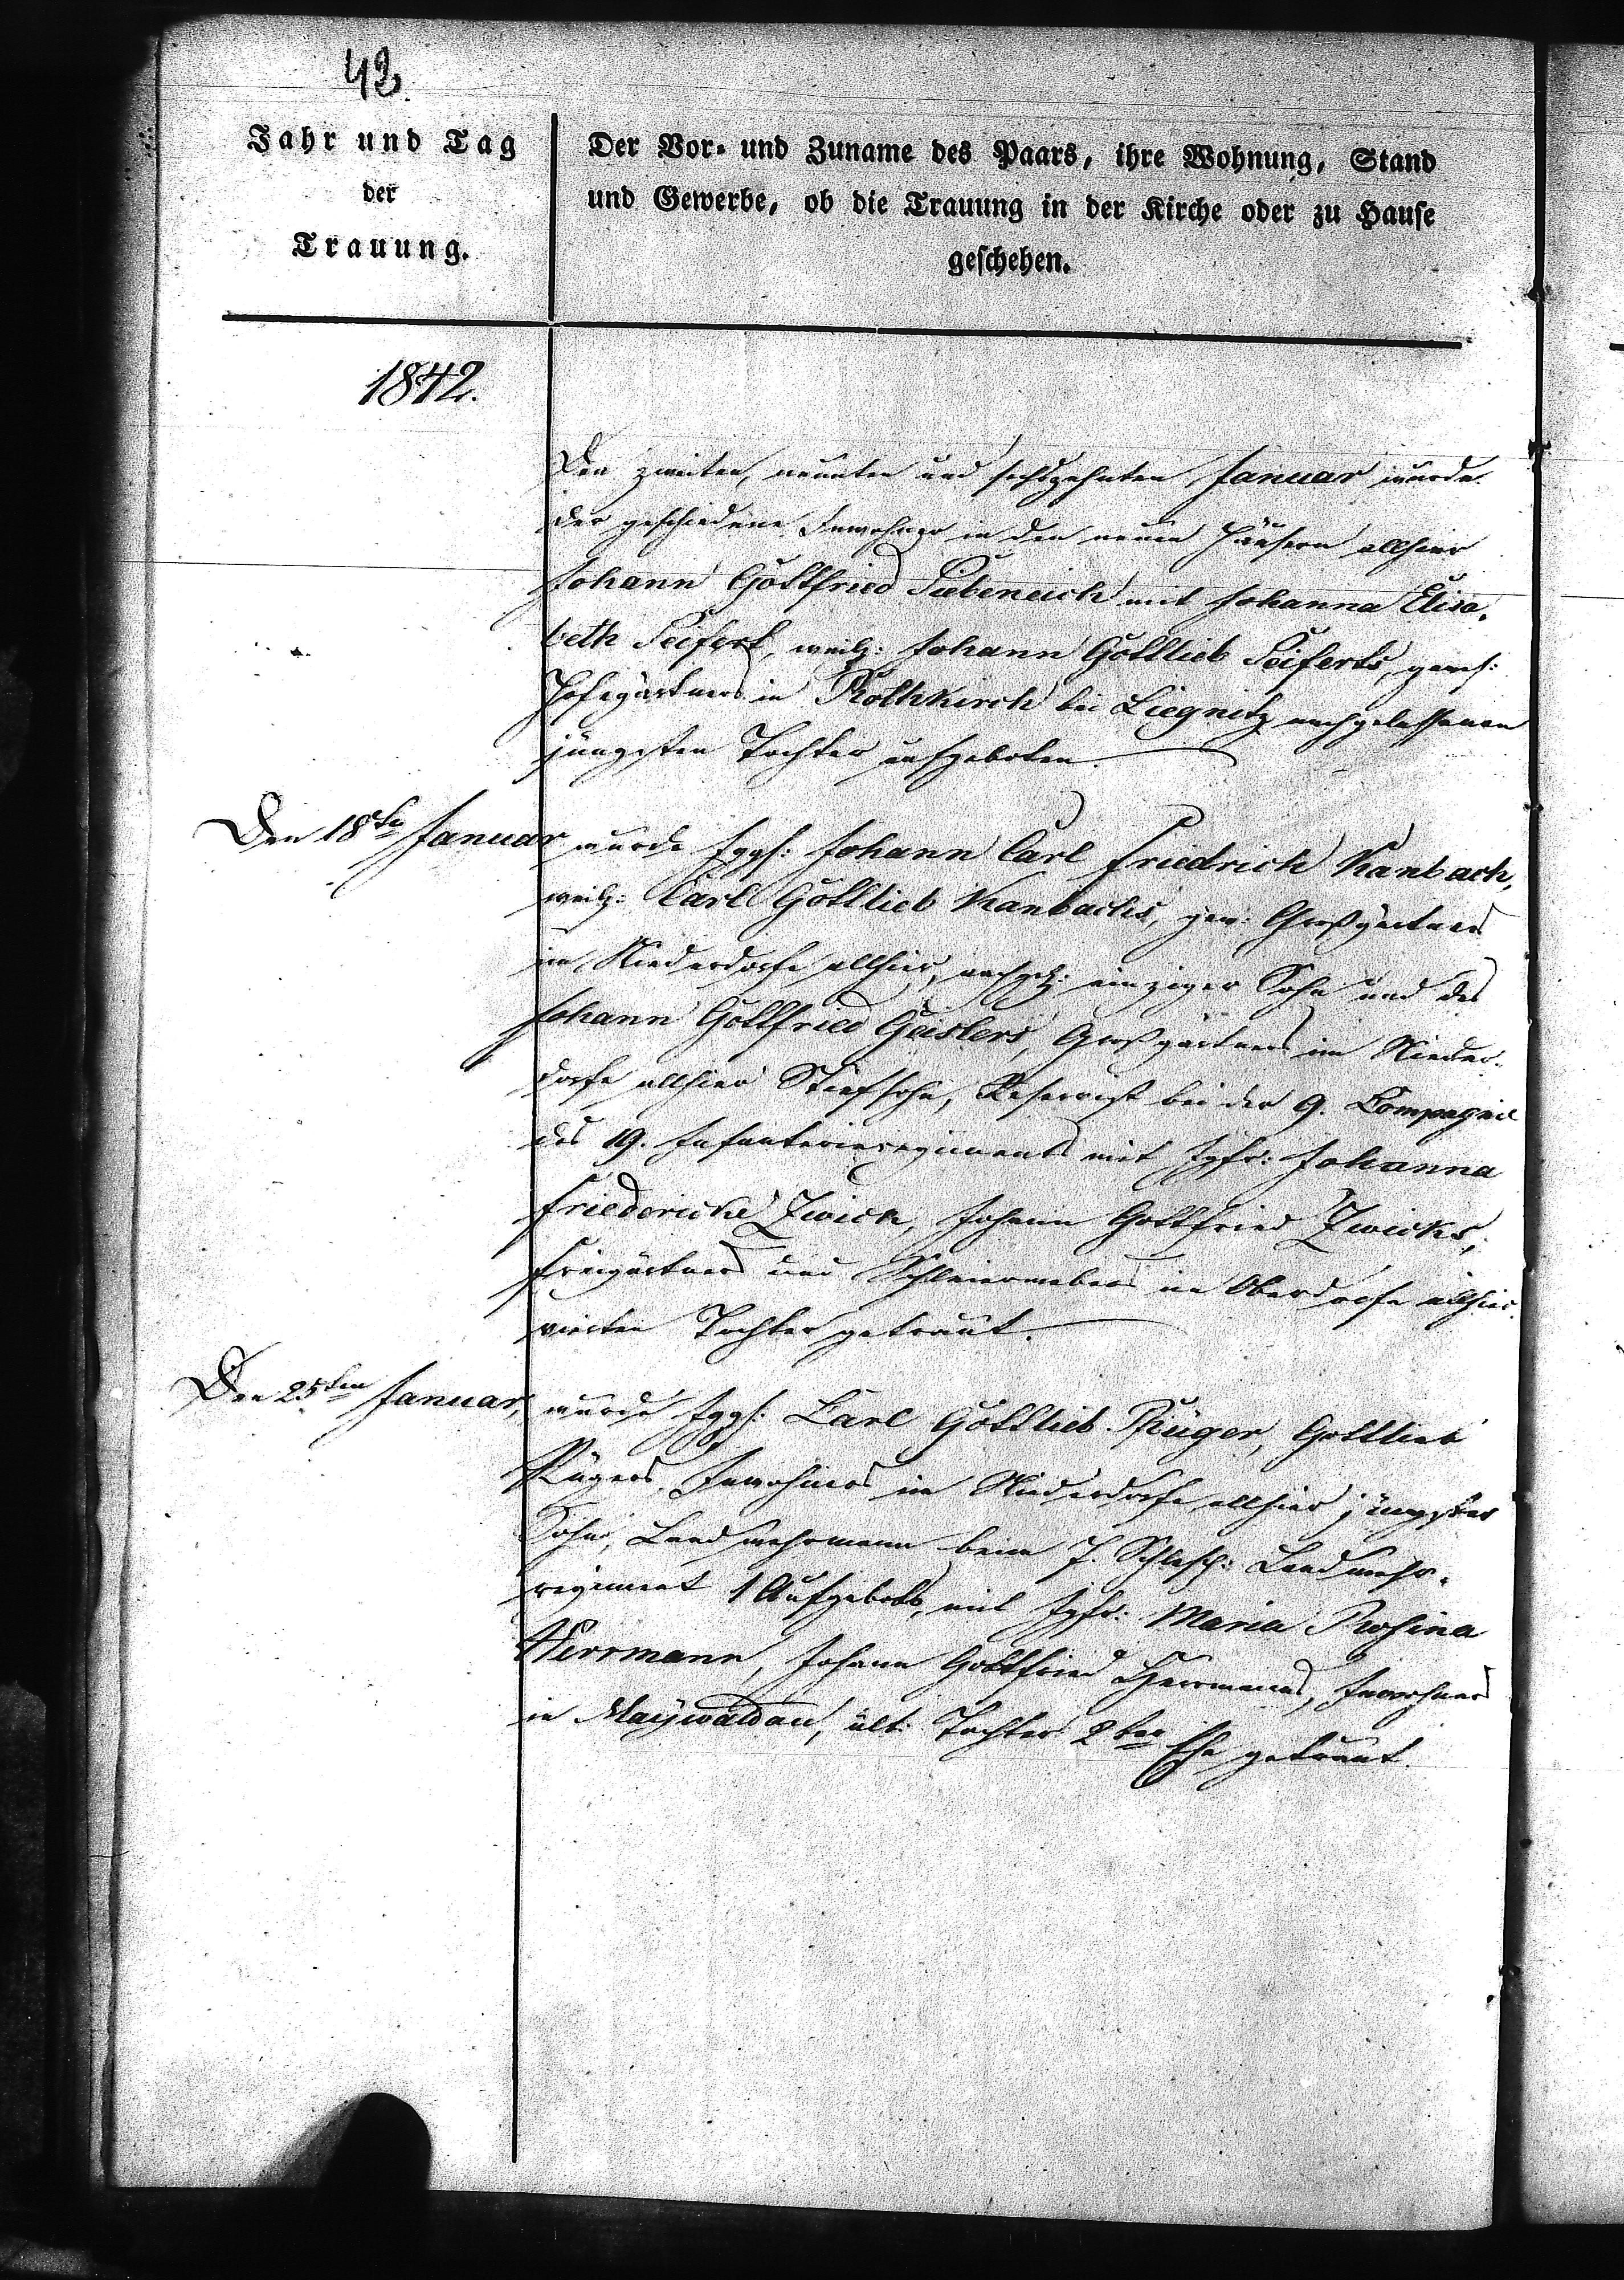 42
Jahr und Tag
der
Trauung.
Der Vor- und Zuname des Paars, ihre Wohnung, Stand
und Gewerbe, ob die Trauung in der Kirche oder zu Hause
geschehen.
1842.
Den zweiten, neunten und sechszehnten Januar wurde
der geschiedene Inwohner in den neuen Häusern allhier
Johann Gottfried Siebeneich mit Johanna Elisa-
beth Seifert, weil: Johann Gottlieb Seiferts, gewes:
Hofegärtners in Rothkirch bei Liegnitz nachgelassenen
jüngsten Tochter aufgeboten.
Den 18te Januar wurde Jggs: Johann Carl Friedrich Kanbach,
weil: Carl Gottlieb Kanbachs, gew: Großgärtners
im Niederdorfe allhier, nachgel: einziger Sohn und des
Johann Gottfried Geislers, Großgärtners im Nieder-
dorfe allhier Stiefsohn, Reservist bei der 9. Compagnie
des 19. Infanterieregiments mit Jgfr: Johanna
Friedericke Zwick, Johann Gottfried Zwicks,
Freigärtners und Schleierwebers im Oberdorfe allhier
vierten Tochter getraut.
Den 25sten Januar, wurde Jggs: Carl Gottlieb Rüger, Gottlieb
Rügers, Inwohners im Niederdorfe allhier jüngster
Sohn, Landwehrmann beim 7. Schlesch: Landwehr-
regiment 1 Aufgebots, mit Jgfr: Maria Rosina
Herrmann, Johann Gottfried Herrmanns, Inwohners
in Maywaldau, ält: Tochter 2ter Ehe getraut.